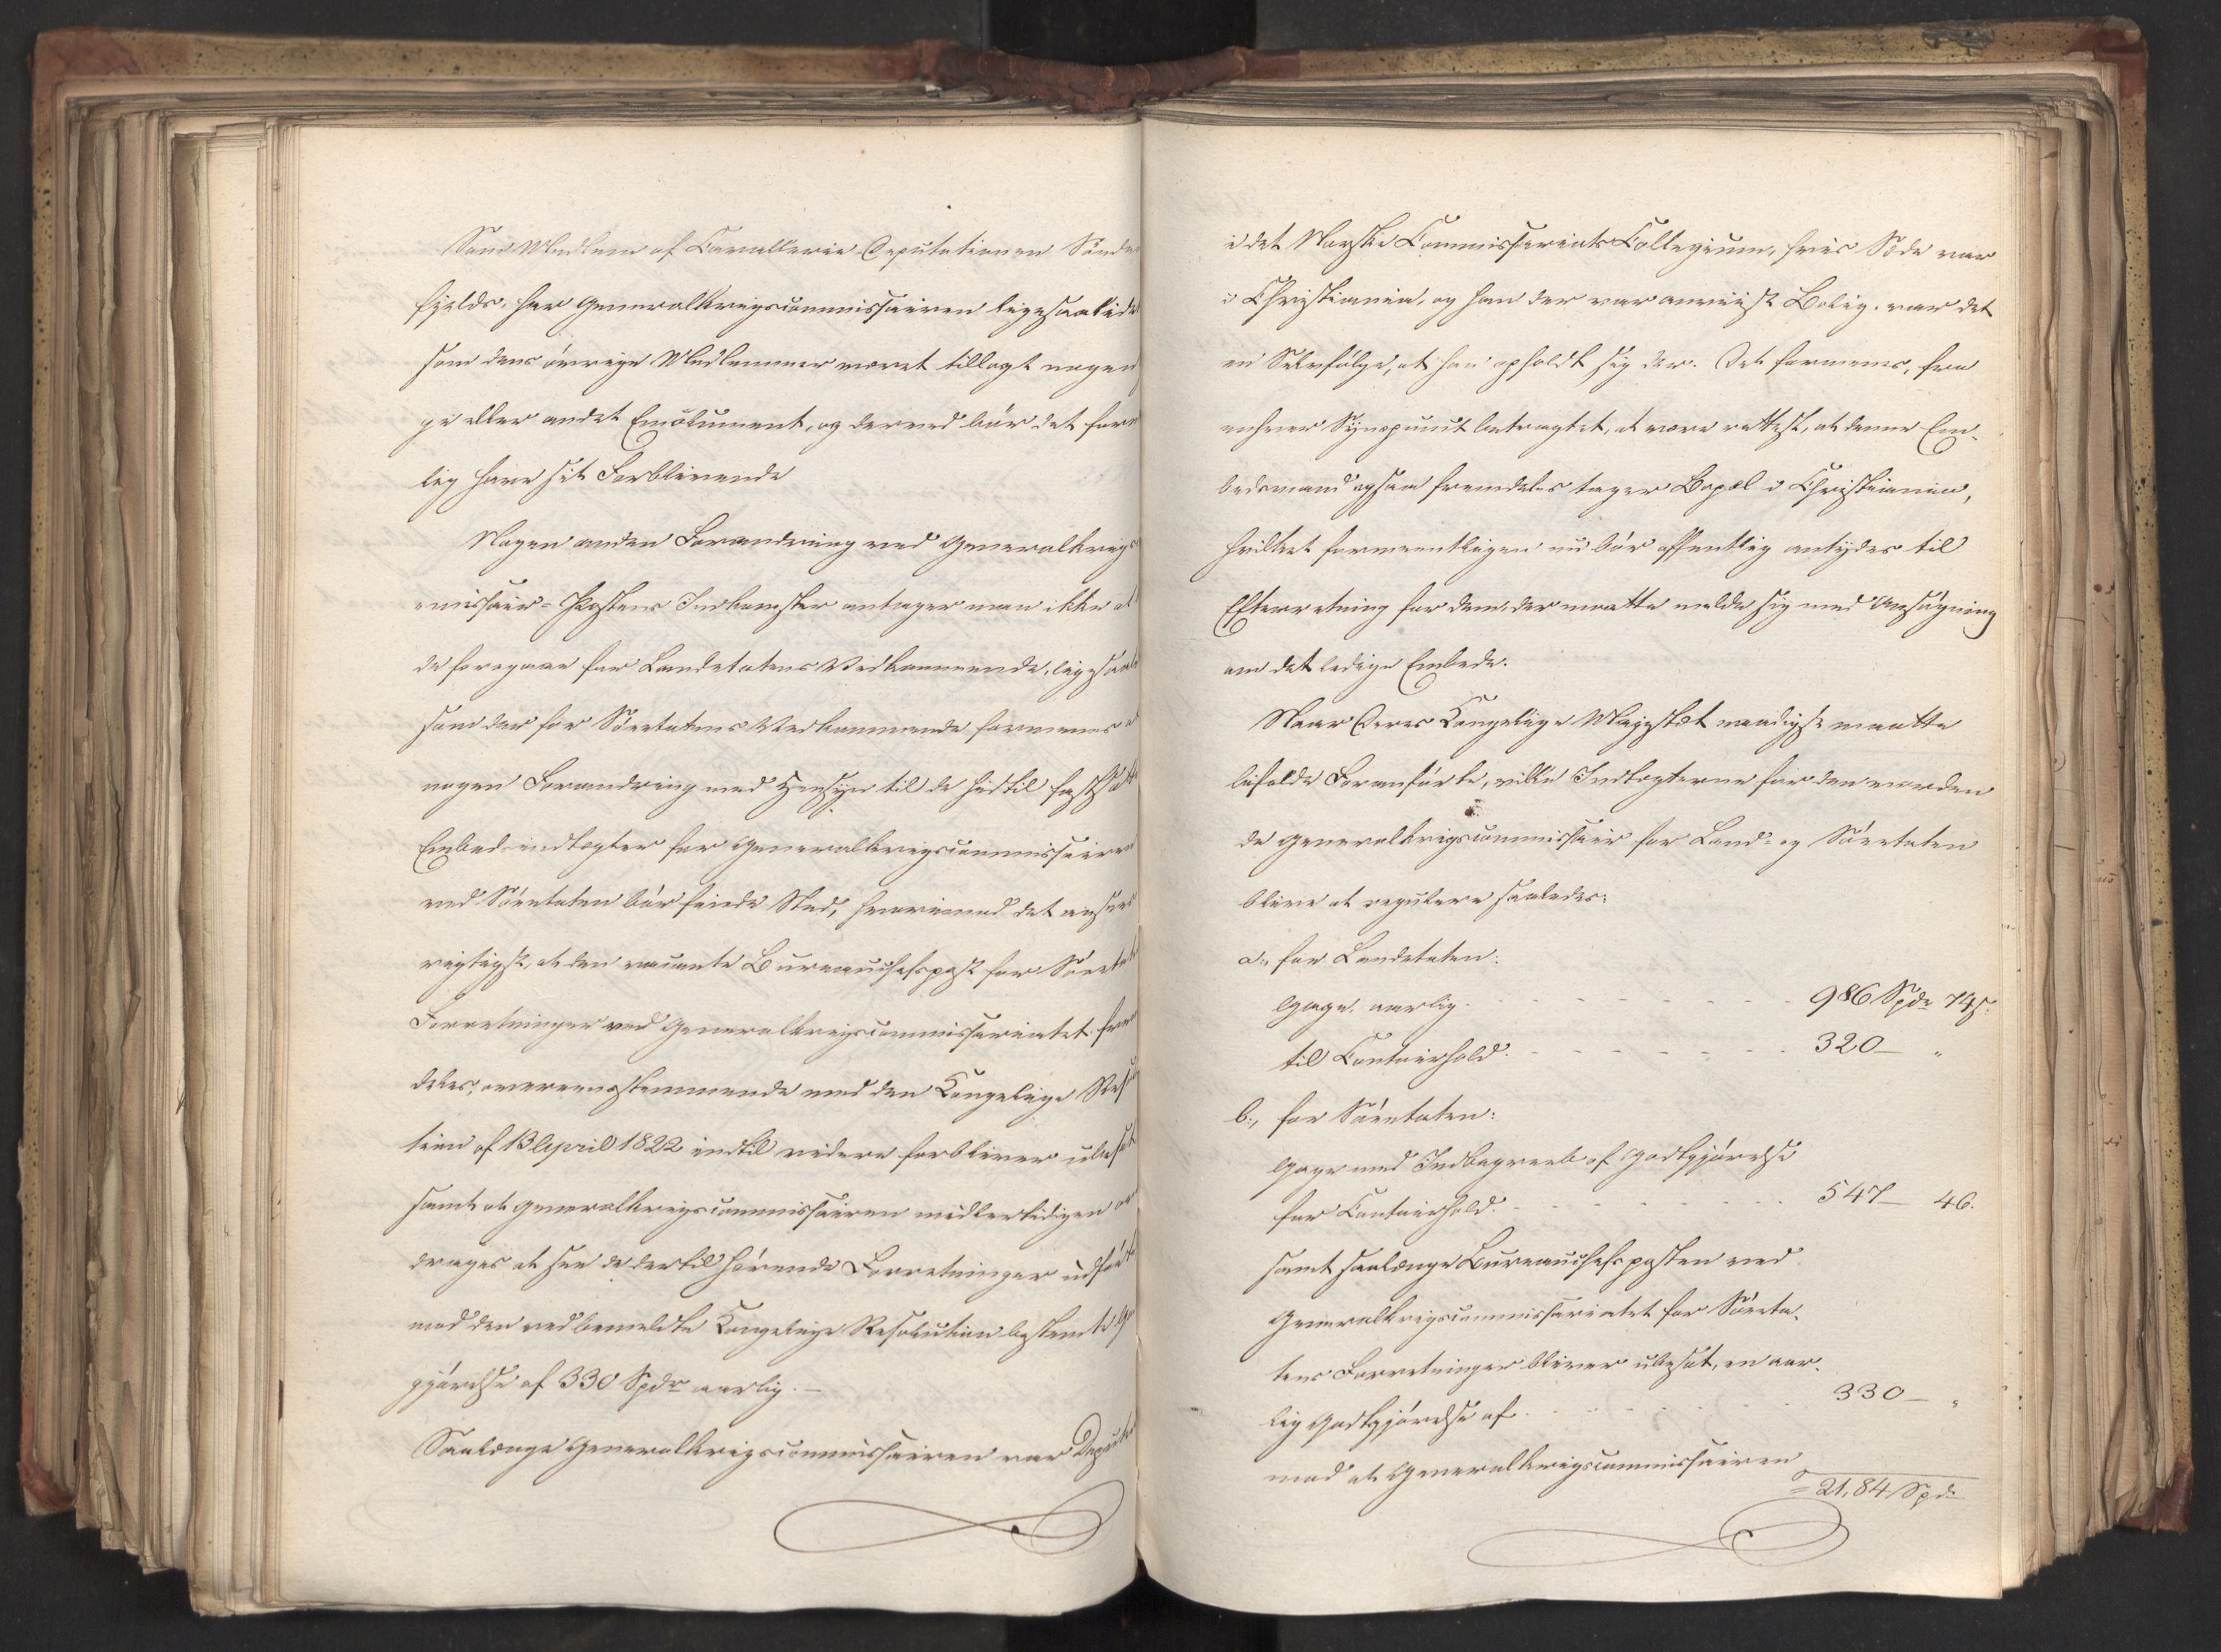 Som Medlem af Cavallerie Deputationen Sönden
fjelds, har Generalkrigscommissairen ligesaalidet
som dens övrige Medlemmer været tillagt nogen
ge eller andet Emolument, og derved bör det form
lig have sit Forblivende
Nogen anden Forandring ved Generalkrigs
missair-Postens Indkomster antager man ikke at
de foregaae for Landetatens Vedkommende, ligesaa
som der for Söeetatens Vedkommende formenes
nogen Forandring med Hensyn til de hidtil fastsatte
Embedsindtægter for Generalkrigscommissairen
ved Söeetaten bör finde Sted, hvorimod det ansees
rigtigst, at den vacante Bureauchefspost for Söeetatens
Forretninger ved Generalkrigscommissariatet frem
deles, overeensstemmende med den Kongelige Resolu
tion af 13 April 1822 indtil videre forbliver ubesat
samt at Generalkrigscommissairen midlertidigen
drages at see de dertil hörende Forretninger udförte
mod den ved bemeldte Kongelige Resolution bestemte
gjörelse af 330 Spdr aarlig.-
Saalænge Generalkrigscommissairen var Deputeret
i det Norske Commissariats Collegium, hvis Sæde var
i Christiania, og han der var anviist Bolig, var det
en Selvfölge, at han opholdt sig der. Det formenes, fra
enhver Synspunct betragtet, at være rettest, at denne Em-
bedsmand ogsaa fremdeles tager Bopæl i Christiania,
hvilket formeentligen nu bör offentlig antydes til
Efterretning for dem, der maatte melde sig med Ansögning
om det ledige Embede.
Naar Deres Kongelige Majestæt naadigst maatte
bifalde Foranförte, ville Indtægterne for den vorden
de Generalkrigscommissair for Land- og Söeetaten
blive at regulere saaledes:
a., for Landetaten:
Gage, aarlig - - - 986 Spdr 74 s.
til Contoirhold. - - - 320 - "
b., for Söeetaten:
Gage med Indbegreeb af Godtgjörelse
for Contoirhold. - - - 547 - 46.
samt saalænge Bureauchefsposten ved
Generalkrigscommissariatet for Söeeta-
tens Forretninger bliver ubesat, en aar-
lig Godtgjörelse af - - - 330 - "
mod at Generalkrigscommissairen
= 21,84 Spdr